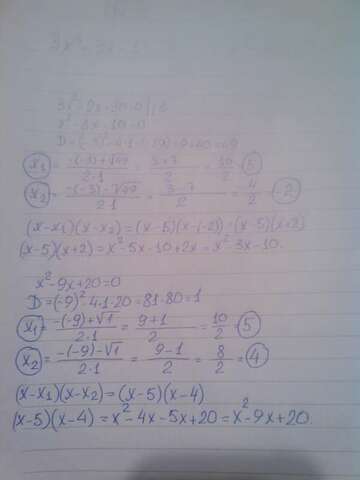 x²-3x-10=0
D=(-3)²-4·1·(-10)=9+40=49
x₁ = -(-3)+√49 / 2·1 = 3+7 / 2 = 10 / 2 = 5
x₂ = -(-3)-√49 / 2·1 = 3-7 / 2 = 4 / 2 = -2
(x-x₁)(x-x₂)=(x-5)(x-(-2))=(x-5)(x+2)
(x-5)(x+2)=x²-5x-10+2x=x² 3x-10.
x²-9x+20=0
D=(-9)²-4·1·20=81-80=1
x₁ = -(-9)+√1 / 2·1 = 9+1 / 2 = 10 / 2 = 5
x₂ = -(-9)-√1 / 2·1 = 9-1 / 2 = 8 / 2 = 4
(x-x₁)(x-x₂)=(x-5)(x-4)
(x-5)(x-4)=x²-4x-5x+20=x²-9x+20.